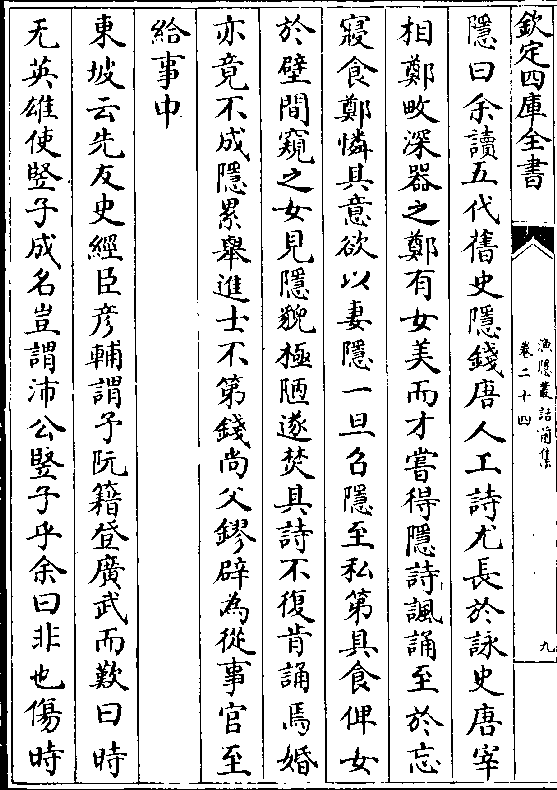 欽定四庫全書
漁隱叢話前集
卷二十四
九
隱曰余讀五代舊史隱錢唐人工詩尤長於詠史唐宰
相鄭畋深器之鄭有女美而才嘗得隱詩諷誦至於忘
寢食鄭憐其意欲以妻隱一旦召隱至私第具食俾女
於壁間窺之女見隱貌極陋遂焚其詩不復肯誦焉婚
亦竟不成隱累舉進士不第錢尚父鏐辟為從事官至
給事中
東坡云先友史經臣彦輔謂予阮籍登廣武而歎曰時
无英雄使豎子成名豈謂沛公豎子乎余曰非也傷時